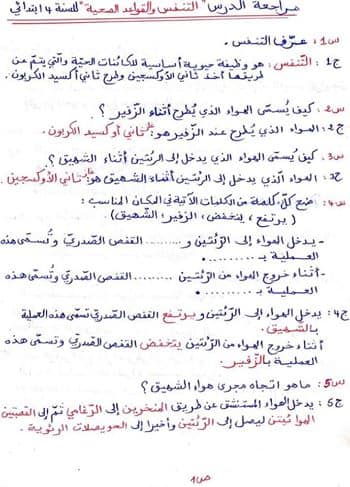 مراجعة الدرس "التنفس والقواعد الصحية" للسنة 4 ابتدائي
س1: عرّف التنفس.
ج1: التّنفس: هو وظيفة حيوية أساسية للكائنات الحيّة والّتي يتمّ عن
طريقها أخذ ثنائي الأوكسجين وطرح ثاني أكسيد الكربون.
س2. كيف يُسمّى الهواء الذي يُطرح أثناء الزّفير؟
ج2: الهواء الذي يُطرح عند الزّفير هو: ثاني أوكسيد الكربون.
س3. كيف يُسمّى الهواء الذي يدخل إلى الرّئتين أثناء الشّهيق؟
ج3: الهواء الّذي يدخل إلى الرّئتين أثناء الشّهيق هو: غاز ثاني الأوكسجين.
س4: ضع كلّ كلمة من الكلمات الآتية في المكان المناسب:
( يرتفع، ينخفض، الزّفير، الشّهيق)
- يدخل الهواء إلى الرّئتين و......... القفص الصّدريّ وتُسمّى هذه
العملية بـ .........
- أثناء خروج الهواء من الرّئتين ......... القفص الصّدري وتُسمّى هذه
العملية بـ .........
ج4: يدخل الهواء إلى الرّئتين ويرتفع القفص الصّدريّ تسمّى هذه العملية
بالشّهيق.
أثناء خروج الهواء من الرّئتين ينخفض القفص الصّدري وتسمّى هذه
العملية بالزّفير.
س5: ماهو اتجاه مجرى هواء الشهيق؟
ج5: يدخل الهواء المستنشق عن طريق المنخرين إلى الرّغامى ثمّ إلى القصبتين
الهوائيتين ليصل إلى الرّئتين وأخيرا إلى الحويصلات الرّئوية.
ص1